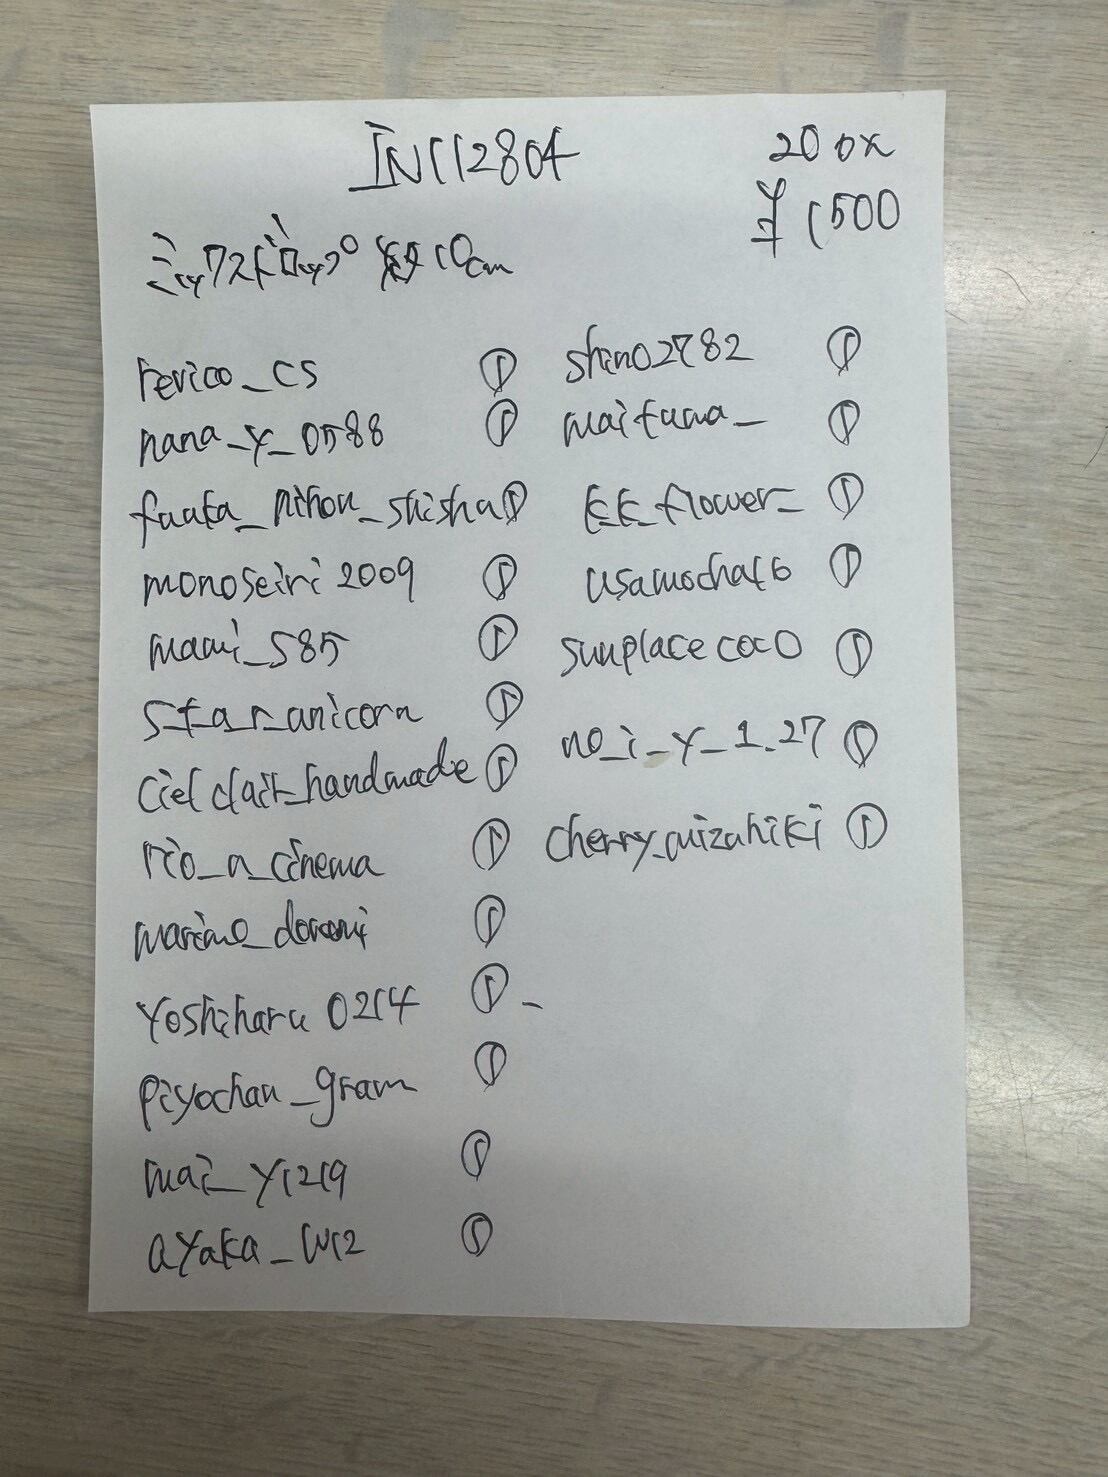 INC12804
200x
¥1500
ミックスドロップ 約10cm
revico_cs ①
nana_y_0588 ①
fuuka_nihon_shisha ①
monoseiri2009 ①
mami_585 ①
star_unicorn ①
cielclair_handmade ①
rio_n_cinema ①
marimo_doremi ①
yoshiharu0214 ①-
piyochan_gram ①
mai_y1219 ①
ayaka_w12 ①
shino2782 ①
maifuma_ ①
kk_flower_ ①
usamocha16 ①
sunplacecoco ①
no_i_y_1.27 ①
cherry_mizuhiki ①